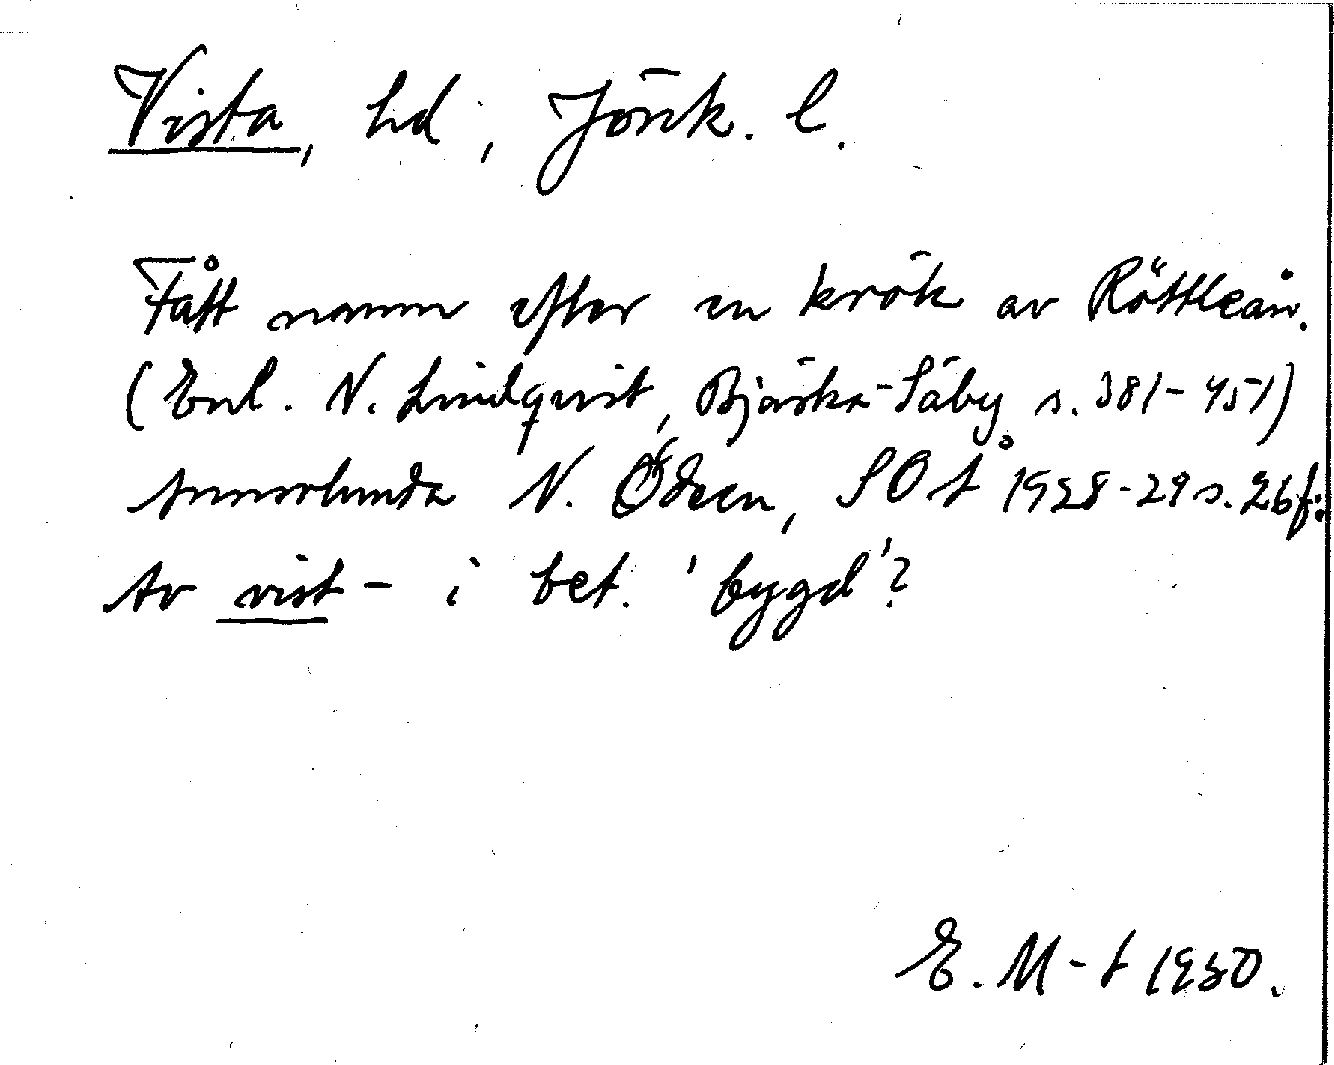 Vista, hd, Jönk. l.
Fått namn efter en krök av Röttleån.
(Enl. N. Lindqvist, Bjärka-Säby s. 381-451)
Annorlunda N. Ödeen, SOÅ 1928-29 s. 26 f:
Av vist- i bet. 'bygd'?
E. M-t 1930.